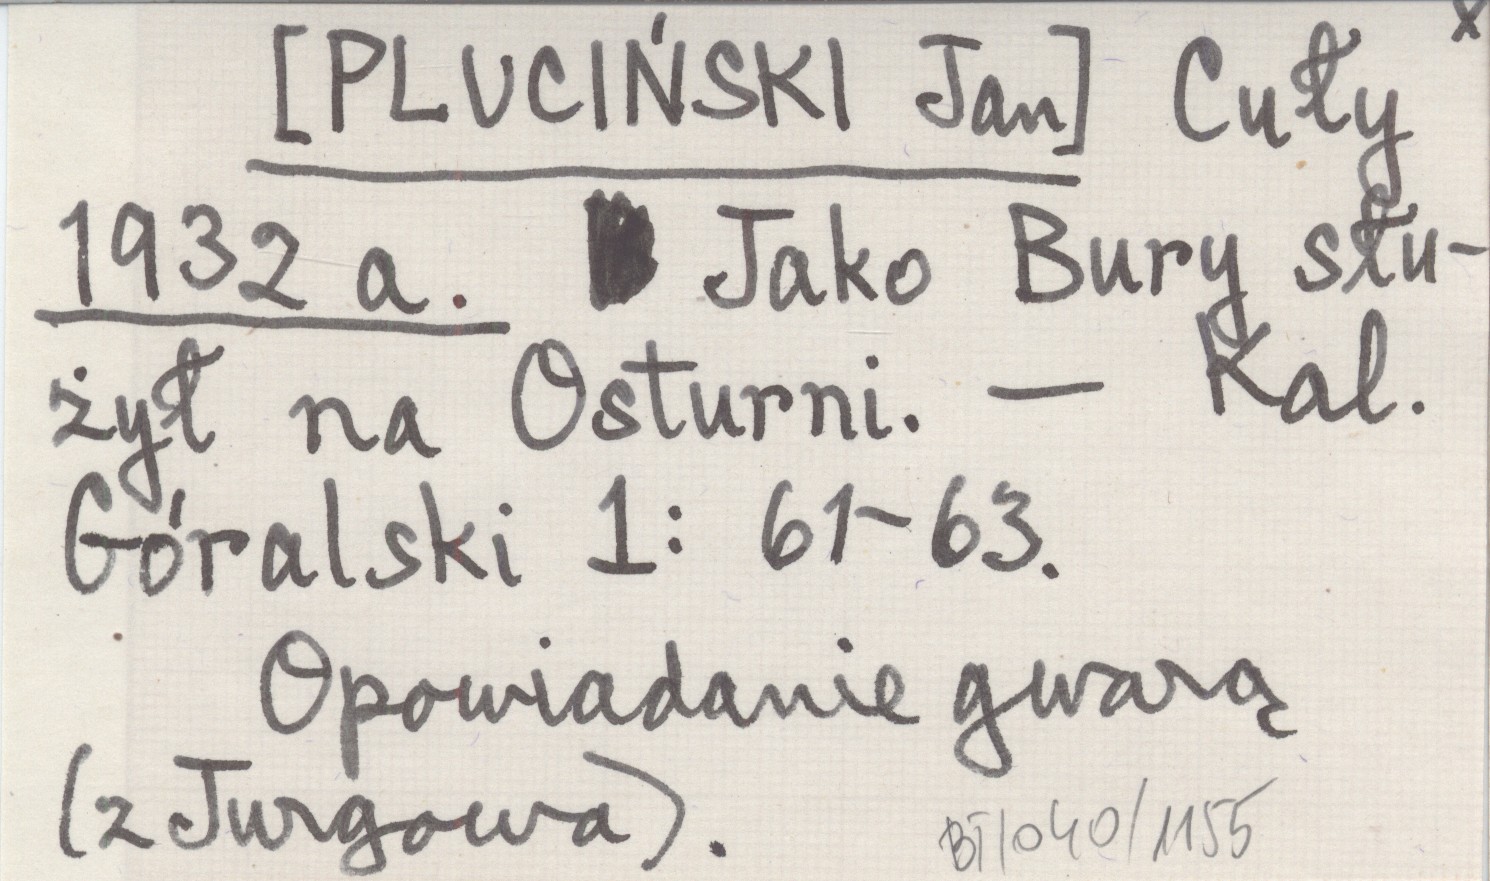 x
[PLUCIŃSKI Jan] Cuły
1932 a. Jako Bury słu-
żył na Osturni. — Kal.
Góralski 1: 61-63.
Opowiadanie gwarą
(z Jurgowa).
BT/040/1155